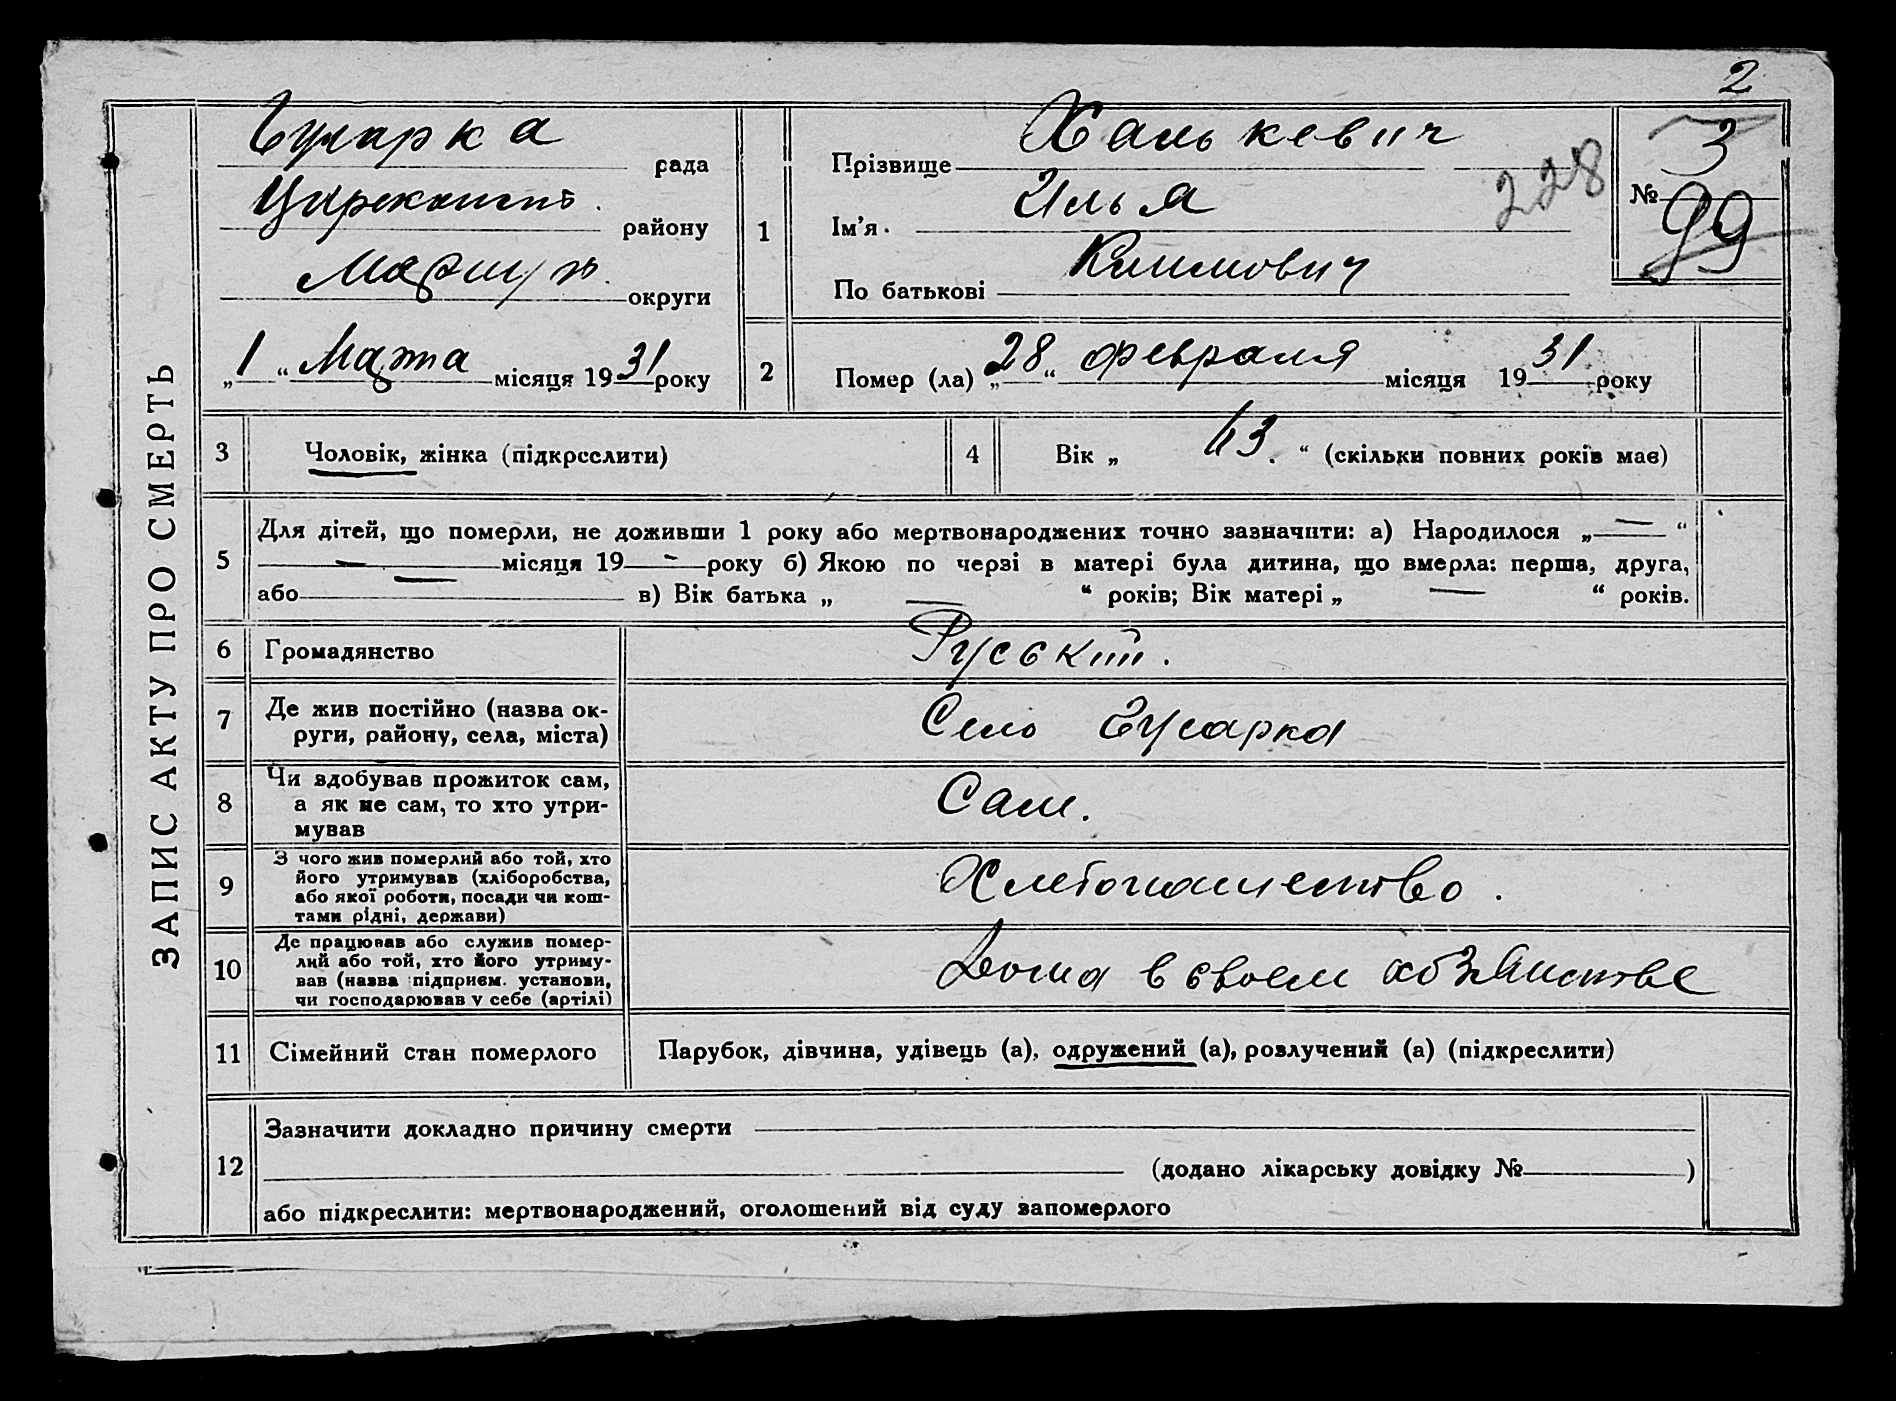 2
ЗАПИС АКТУ ПРО СМЕРТЬ
Гусарка рада
району
округи
„1“ Марта місяця 1931 року
1
Прізвище Халькевич
Ім'я Илья
По батькові Климович
228
№ 3
99
2
Помер (ла) „28“ февраля місяця 1931 року
3
Чоловік, жінка (підкреслити)
4
Вік „63.“ (скільки повних років має)
5
Для дітей, що померли, не доживши 1 року або мертвонароджених точно зазначити: а) Народилося „—“
— місяця 19 — року б) Якою по черзі в матері була дитина, що вмерла: перша, друга,
або — в) Вік батька „ — “ років; Вік матері „ — “ років.
6
Громадянство
Руський.
7
Де жив постійно (назва ок-
руги, району, села, міста)
Село Гусарка
8
Чи здобував прожиток сам,
а як не сам, то хто утри-
мував
Сам.
9
З чого жив померлий або той, хто
його утримував (хліборобства,
або якої роботи, посади чи кош-
тами рідні, держави)
Хлебопашество.
10
Де працював або служив помер-
лий або той, хто його утриму-
вав (назва підприєм. установи,
чи господарював у себе (артілі)
Дома в своем хозяистве
11
Сімейний стан померлого
Парубок, дівчина, удівець (а), одружений (а), розлучений (а) (підкреслити)
12
Зазначити докладно причину смерти
(додано лікарську довідку № )
або підкреслити: мертвонароджений, оголошений від суду запомерлого